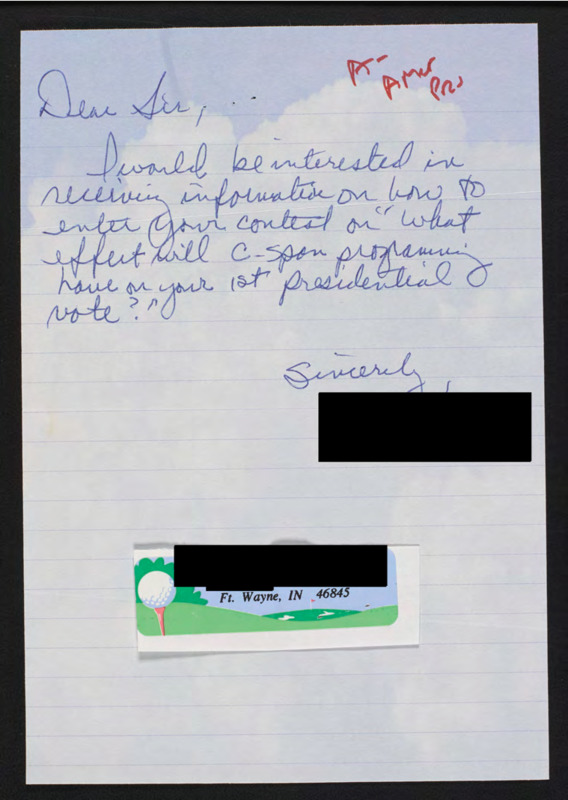 Dear Sir,
I would be interested in
receiving information on how to
enter your contest on "What
effect will C-span programing
have on your 1st presidential
vote?"
Sincerely,
Ft. Wayne, IN 46845